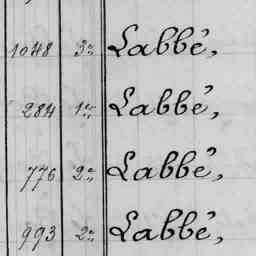 1048 3e Labbé,
284 1er Labbé,
776 2e Labbé,
993 2e Labbé,